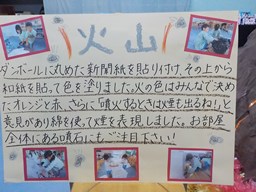 火山
ダンボールに丸めた新聞紙を貼り付け、その上から
和紙を貼って色を塗りました。火の色はみんなで決め
たオレンジと赤、さらに「噴火するときは煙も出るね!」と
意見があり綿を使って煙を表現しました。お部屋
全体にある噴石にもご注目下さい!